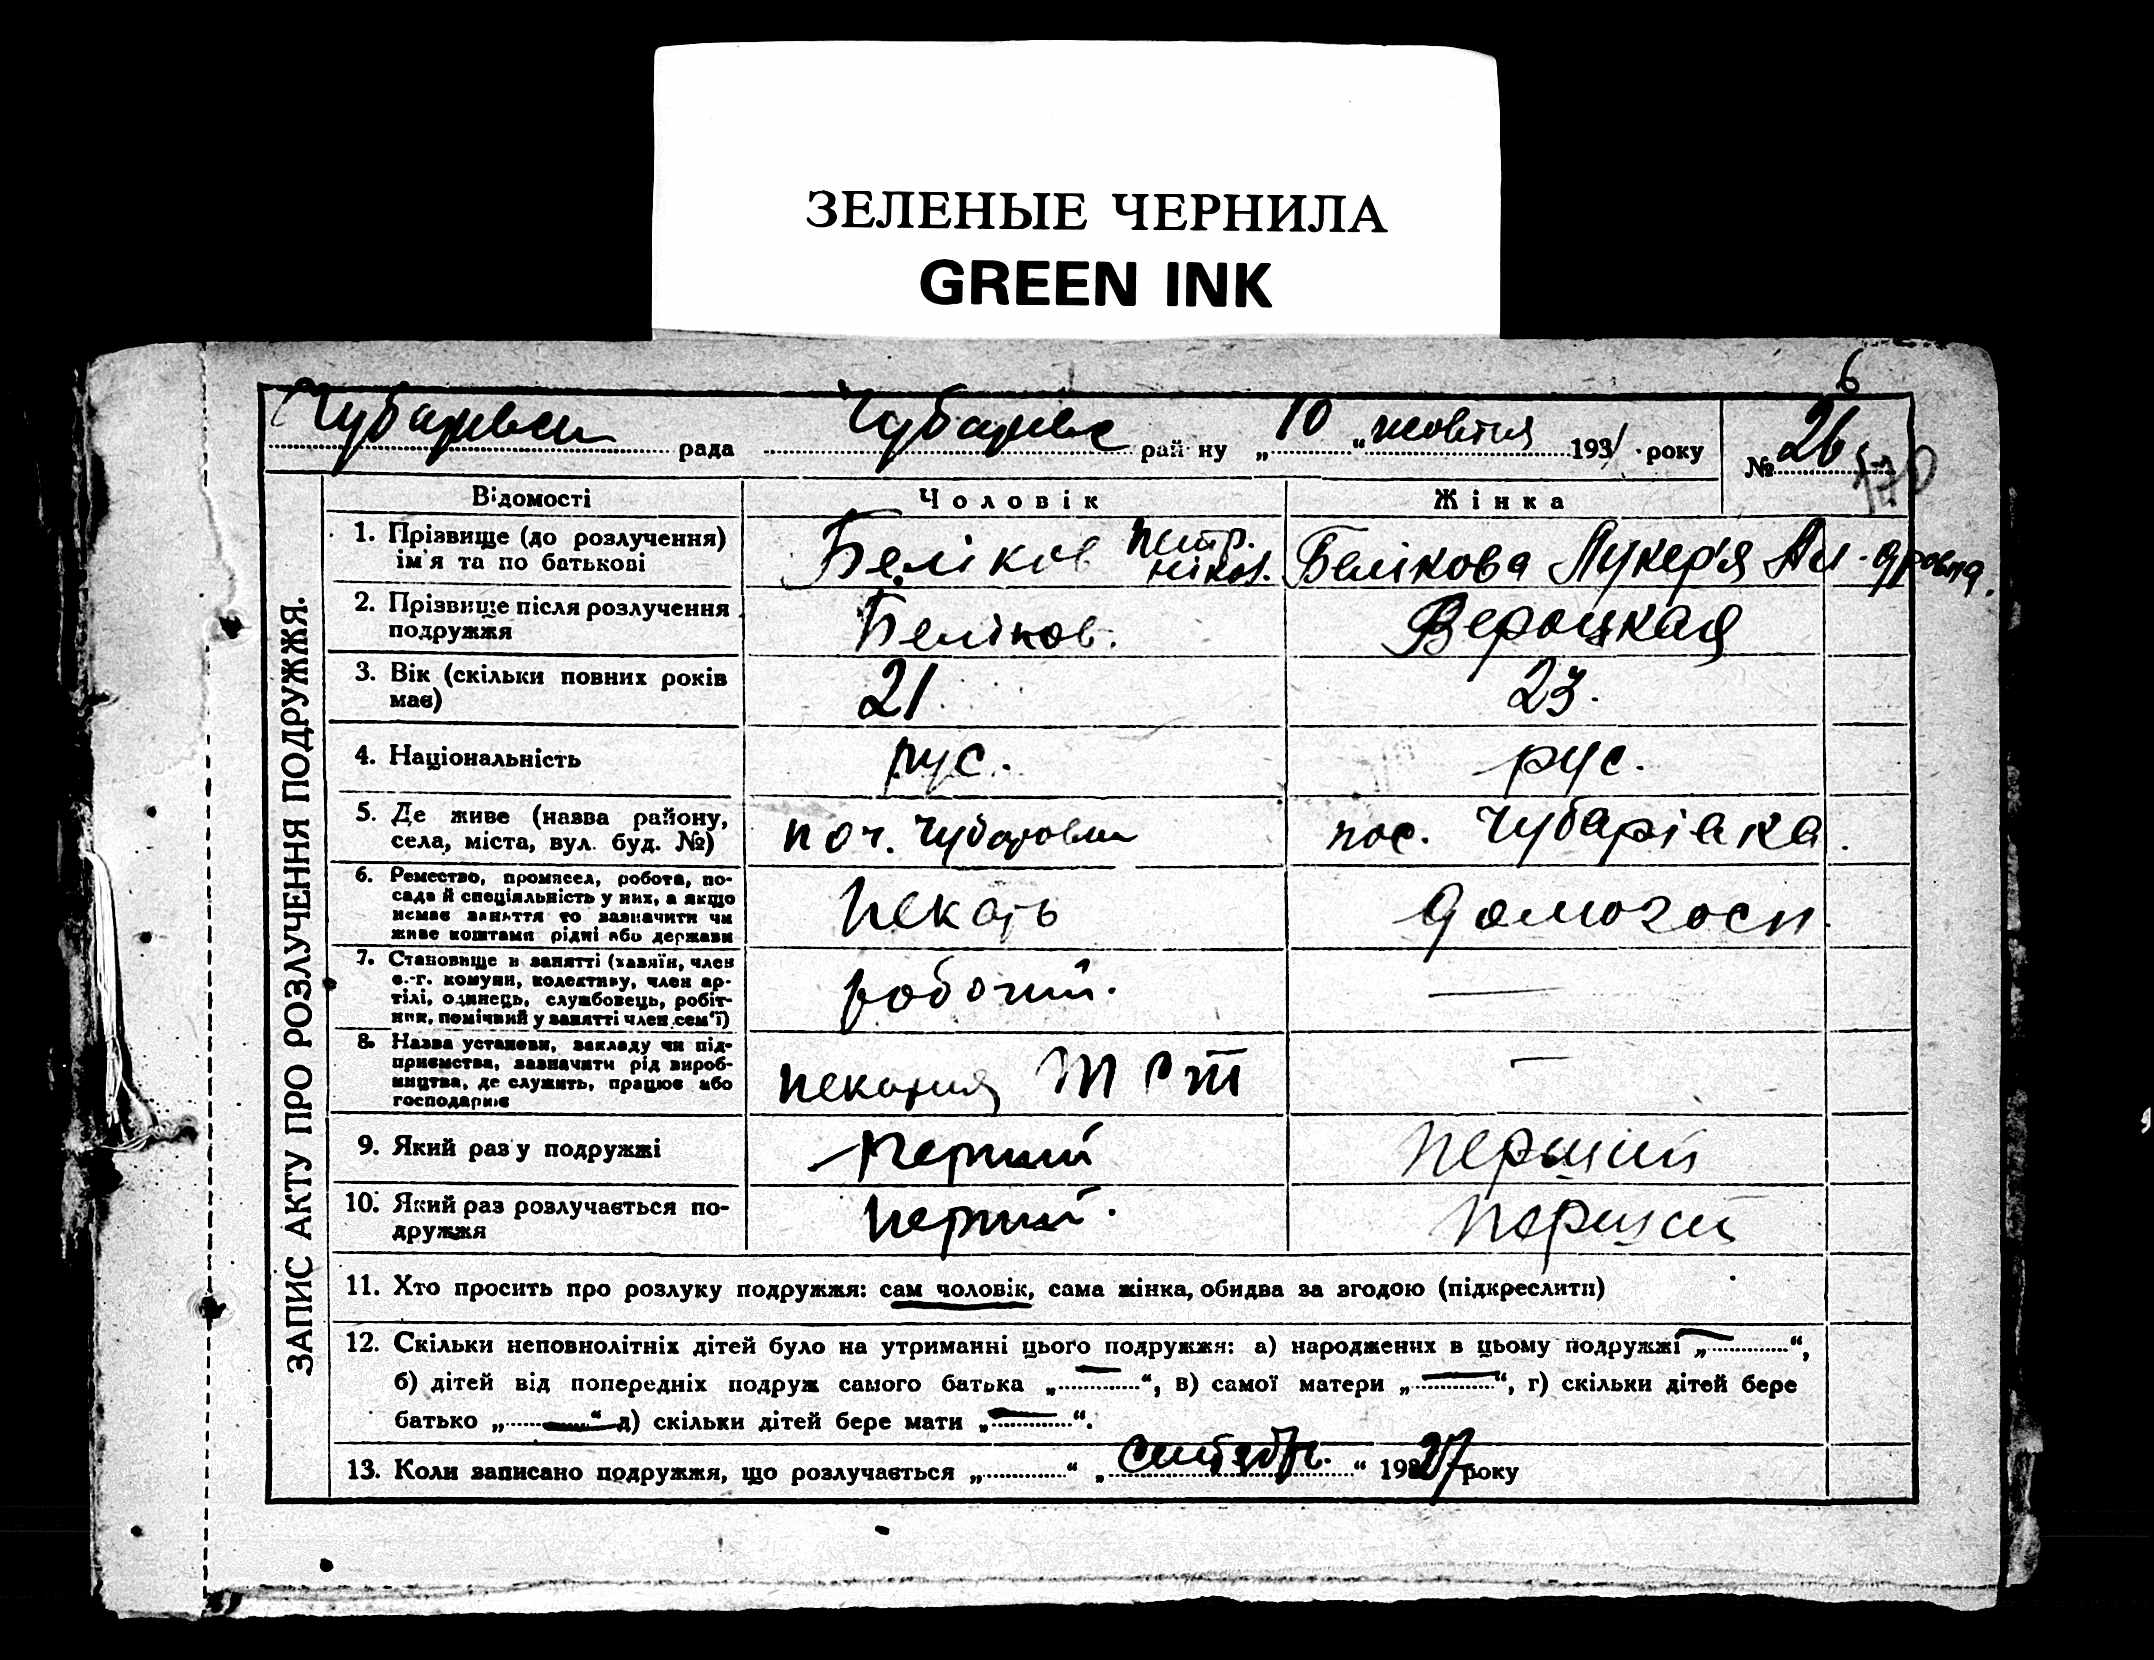 ЗЕЛЕНЫЕ ЧЕРНИЛА
GREEN INK
6
рада район ну „10 „жовтня 1931 року № 26
ЗАПИС АКТУ ПРО РОЗЛУЧЕННЯ ПОДРУЖЖЯ.
Відомості Чоловік Жінка
1. Прізвище (до розлучення) ім'я та по батькові Беліков Петр. Нікол. Белікова Лукер'я
2. Прізвище після розлучення подружжя Беліков.
3. Вік (скільки повних років має) 21 23.
4. Національність рус. рус.
5. Де живе (назва району, села, міста, вул. буд. №) пос. Чубарівка
6. Ремество, промисел, робота, по-
сада й спеціяльність у них, а якщо
немає заняття то зазначити чи
живе коштами рідні або держави Пекарь домогосп.
7. Становище в занятті (хазяїн, член
с.-г. комуни, колективу, член ар-
тілі, одинець, службовець, робіт-
ник, помічний у занятті член сем'ї) робочий. —
8. Назва установи, закладу чи під-
приємства, зазначити рід вироб-
ництва, де служить, працює або
господарює пекарня —
9. Який раз у подружжі Перший Перший
10. Який раз розлучається по-
дружжя Перший. Перший
11. Хто просить про розлуку подружжя: сам чоловік, сама жінка, обидва за згодою (підкреслити)
12. Скільки неповнолітніх дітей було на утриманні цього подружжя: а) народжених в цьому подружжі „—“,
б) дітей від попередніх подруж самого батька „—“, в) самої матери „—“, г) скільки дітей бере
батько „—“ д) скільки дітей бере мати „—“.
13. Коли записано подружжя, що розлучається „ “ „сентябр.“ 1927 року